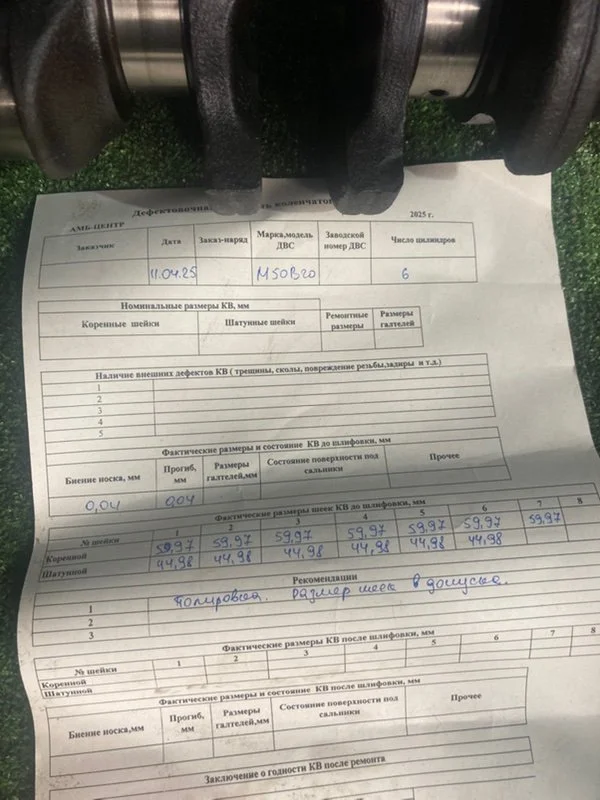 Дефектовочна коленчатог
АМБ-ЦЕНТР 2025 г.
Заказчик Дата Заказ-наряд Марка,модель ДВС Заводской номер ДВС Число цилиндров
11.04.25 M50B20 6
Номинальные размеры КВ, мм
Коренные шейки Шатунные шейки Ремонтные размеры Размеры галтелей
Наличие внешних дефектов КВ ( трещины, сколы, повреждение резьбы,задиры и т.д.)
1
2
3
4
5
Фактические размеры и состояние КВ до шлифовки, мм
Биение носка, мм Прогиб, мм Размеры галтелей,мм Состояние поверхности под сальники Прочее
0,04 0,04
Фактические размеры шеек КВ до шлифовки, мм
№ шейки 1 2 3 4 5 6 7 8
Коренной 59,97 59,97 59,97 59,97 59,97 59,97 59,97
Шатунной 44,98 44,98 44,98 44,98 44,98 44,98
Рекомендации
1 Полировка. Размер шеек в допуске.
2
3
Фактические размеры КВ после шлифовки, мм
№ шейки 1 2 3 4 5 6 7 8
Коренной
Шатунной
Фактические размеры и состояние КВ после шлифовки, мм
Биение носка,мм Прогиб, мм Размеры галтелей,мм Состояние поверхности под сальники Прочее
Заключение о годности КВ после ремонта